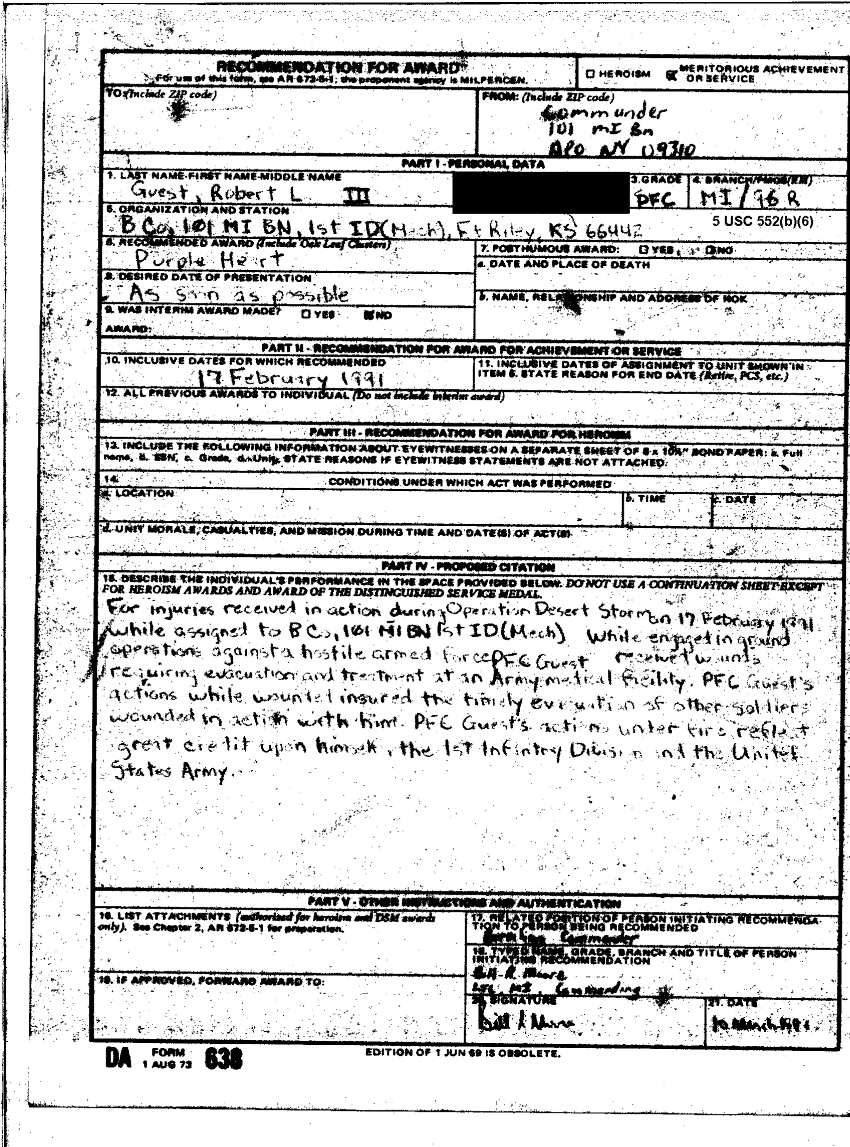 RECOMMENDATION FOR AWARD
For use of this form, see AR 672-5-1; the proponent agency is MILPERCEN.
HEROISM
MERITORIOUS ACHIEVEMENT
OR SERVICE
TO: (Include ZIP code)
FROM: (Include ZIP code)
Commander
101 MI Bn
APO NY 09310
PART I - PERSONAL DATA
1. LAST NAME-FIRST NAME-MIDDLE NAME
Guest, Robert L III
3. GRADE
PFC
4. BRANCH/PMOS (EM)
MI/96R
5 USC 552(b)(6)
5. ORGANIZATION AND STATION
B Co, 101 MI BN, 1st ID(Mech), Ft Riley, KS 66442
6. RECOMMENDED AWARD (Include Oak Leaf Clusters)
Purple Heart
7. POSTHUMOUS AWARD: YES NO
a. DATE AND PLACE OF DEATH
8. DESIRED DATE OF PRESENTATION
As soon as possible
b. NAME, RELATIONSHIP AND ADDRESS OF NOK
9. WAS INTERIM AWARD MADE? YES NO
AWARD:
PART II - RECOMMENDATION FOR AWARD FOR ACHIEVEMENT OR SERVICE
10. INCLUSIVE DATES FOR WHICH RECOMMENDED
17 February 1991
11. INCLUSIVE DATES OF ASSIGNMENT TO UNIT SHOWN IN
ITEM 5. STATE REASON FOR END DATE (Retire, PCS, etc.)
12. ALL PREVIOUS AWARDS TO INDIVIDUAL (Do not include interim award)
PART III - RECOMMENDATION FOR AWARD FOR HEROISM
13. INCLUDE THE FOLLOWING INFORMATION ABOUT EYEWITNESSES ON A SEPARATE SHEET OF 8 x 10½" BOND PAPER: a. Full
name, b. SSN, c. Grade, d. Unit. STATE REASONS IF EYEWITNESS STATEMENTS ARE NOT ATTACHED.
14. CONDITIONS UNDER WHICH ACT WAS PERFORMED
a. LOCATION
b. TIME
c. DATE
d. UNIT MORALE, CASUALTIES, AND MISSION DURING TIME AND DATE(S) OF ACT(S)
PART IV - PROPOSED CITATION
15. DESCRIBE THE INDIVIDUAL'S PERFORMANCE IN THE SPACE PROVIDED BELOW. DO NOT USE A CONTINUATION SHEET EXCEPT
FOR HEROISM AWARDS AND AWARD OF THE DISTINGUISHED SERVICE MEDAL.
For injuries received in action during Operation Desert Storm on 17 February 1991
while assigned to B Co, 101 MI BN 1st ID (Mech) While engaged in ground
operations against a hostile armed force PFC Guest received wounds
requiring evacuation and treatment at an Army medical facility. PFC Guest's
actions while wounded insured the timely evacuation of other soldiers
wounded in action with him. PFC Guest's actions under fire reflect
great credit upon himself, the 1st Infantry Division and the United
States Army.
PART V - OTHER INSTRUCTIONS AND AUTHENTICATION
16. LIST ATTACHMENTS (authorized for heroism and DSM awards
only). See Chapter 2, AR 672-5-1 for preparation.
17. RELATED POSITION OF PERSON INITIATING RECOMMENDA-
TION TO PERSON BEING RECOMMENDED
Commander
18. TYPED NAME, GRADE, BRANCH AND TITLE OF PERSON
INITIATING RECOMMENDATION
Bill R. Moore
LTC, MI, Commanding
19. IF APPROVED, FORWARD AWARD TO:
20. SIGNATURE
21. DATE
10 March 1991
DA FORM 638
1 AUG 73
EDITION OF 1 JUN 69 IS OBSOLETE.